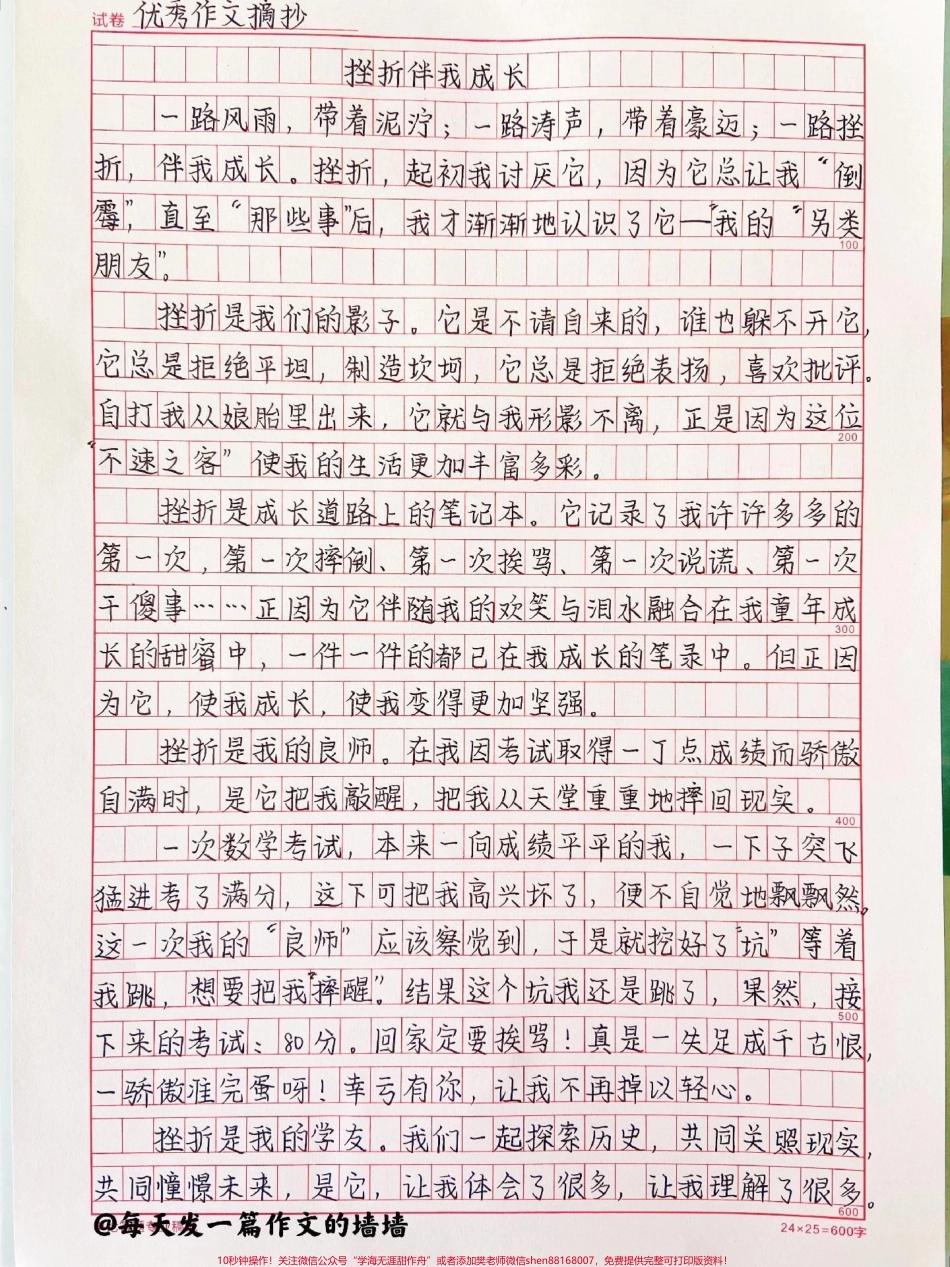 试卷 优秀作文摘抄
挫折伴我成长
一路风雨，带着泥泞；一路涛声，带着豪迈；一路挫
折，伴我成长。挫折，起初我讨厌它，因为它总让我“倒
霉”，直至“那些事”后，我才渐渐地认识了它——我的“另类
100
朋友”。
挫折是我们的影子。它是不请自来的，谁也躲不开它，
它总是拒绝平坦，制造坎坷，它总是拒绝表扬，喜欢批评。
自打我从娘胎里出来，它就与我形影不离，正是因为这位
200
“不速之客”使我的生活更加丰富多彩。
挫折是成长道路上的笔记本。它记录了我许许多多的
第一次，第一次摔倒、第一次挨骂、第一次说谎、第一次
干傻事……正因为它伴随我的欢笑与泪水融合在我童年成
300
长的甜蜜中，一件一件的都已在我成长的笔录中。但正因
为它，使我成长，使我变得更加坚强。
挫折是我的良师。在我因考试取得一丁点成绩而骄傲
自满时，是它把我敲醒，把我从天堂重重地摔回现实。
400
一次数学考试，本来一向成绩平平的我，一下子突飞
猛进考了满分，这下可把我高兴坏了，便不自觉地飘飘然。
这一次我的“良师”应该察觉到，于是就挖好了“坑”等着
我跳，想要把我“摔醒”。结果这个坑我还是跳了，果然，接
500
下来的考试：80分。回家定要挨骂！真是一失足成千古恨，
一骄傲准完蛋呀！幸亏有你，让我不再掉以轻心。
挫折是我的学友。我们一起探索历史，共同关照现实，
共同憧憬未来，是它，让我体会了很多，让我理解了很多。
600
@每天发一篇作文的墙墙
24×25=600字
10秒钟操作！关注微信公众号“学海无涯甜作舟”或者添加樊老师微信shen88168007，免费提供完整可打印版资料！